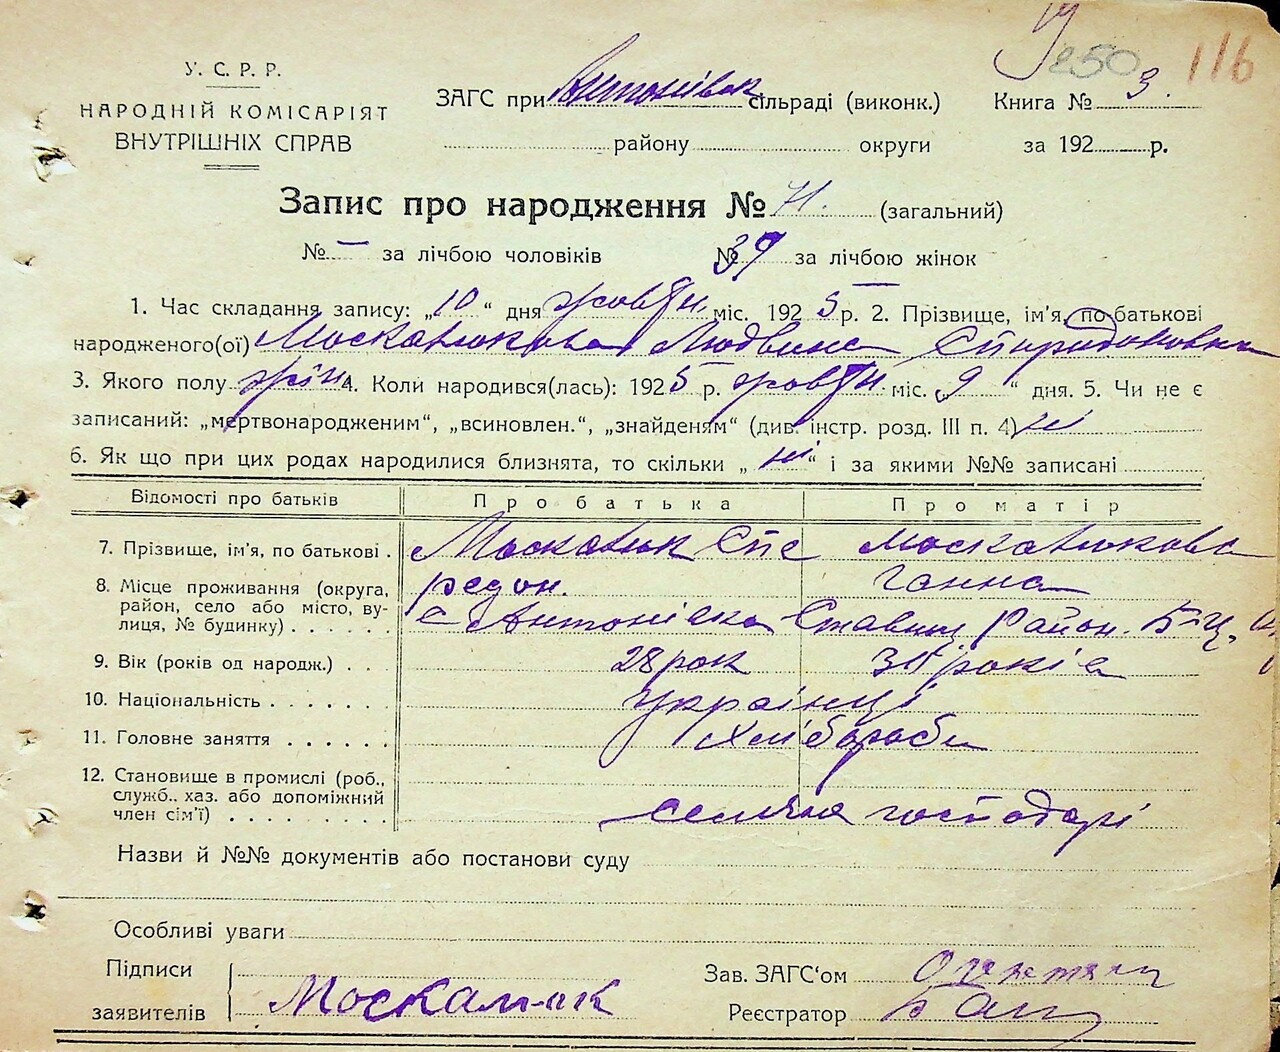 250 116
У. С. Р. Р.
НАРОДНІЙ КОМІСАРІЯТ
ВНУТРІШНІХ СПРАВ
ЗАГС при Антонівск сільраді (виконк.) Книга № 3.
району округи за 192 р.
Запис про народження № 71. (загальний)
№ — за лічбою чоловіків № 37 за лічбою жінок
1. Час складання запису: „10“ дня жовтн. міс. 1925 р. 2. Прізвище, ім'я, по батькові
народженого(ої) Москалюкова Людвина Спиридоновна
3. Якого полу жін 4. Коли народився(лась): 1925 р. жовтн. міс. 9 “ дня. 5. Чи не є
записаний: „мертвонародженим“, „всиновлен.“, „знайденям“ (див. інстр. розд. III п. 4) ні
6. Як що при цих родах народилися близнята, то скільки „ ні “ і за якими №№ записані
Відомості про батьків Про батька Про матір
7. Прізвище, ім'я, по батькові . Москалюк Спе редон. Москалюкова Ганна
8. Місце проживання (округа, район, село або місто, вулиця, № будинку) . . . . . . с Антонівка Ставищ Район. Б-Ц.
9. Вік (років од народж.) . . . 28 рок років
10. Національність . . . . . . . українці
11. Головне заняття . . . . . . Хлібороби
12. Становище в промислі (роб., служб., хаз. або допоміжний член сім'ї) . . . . . . . . . господарі
Назви й №№ документів або постанови суду
Особливі уваги
Підписи
заявителів Москалюк
Зав. ЗАГС'ом
Реєстратор